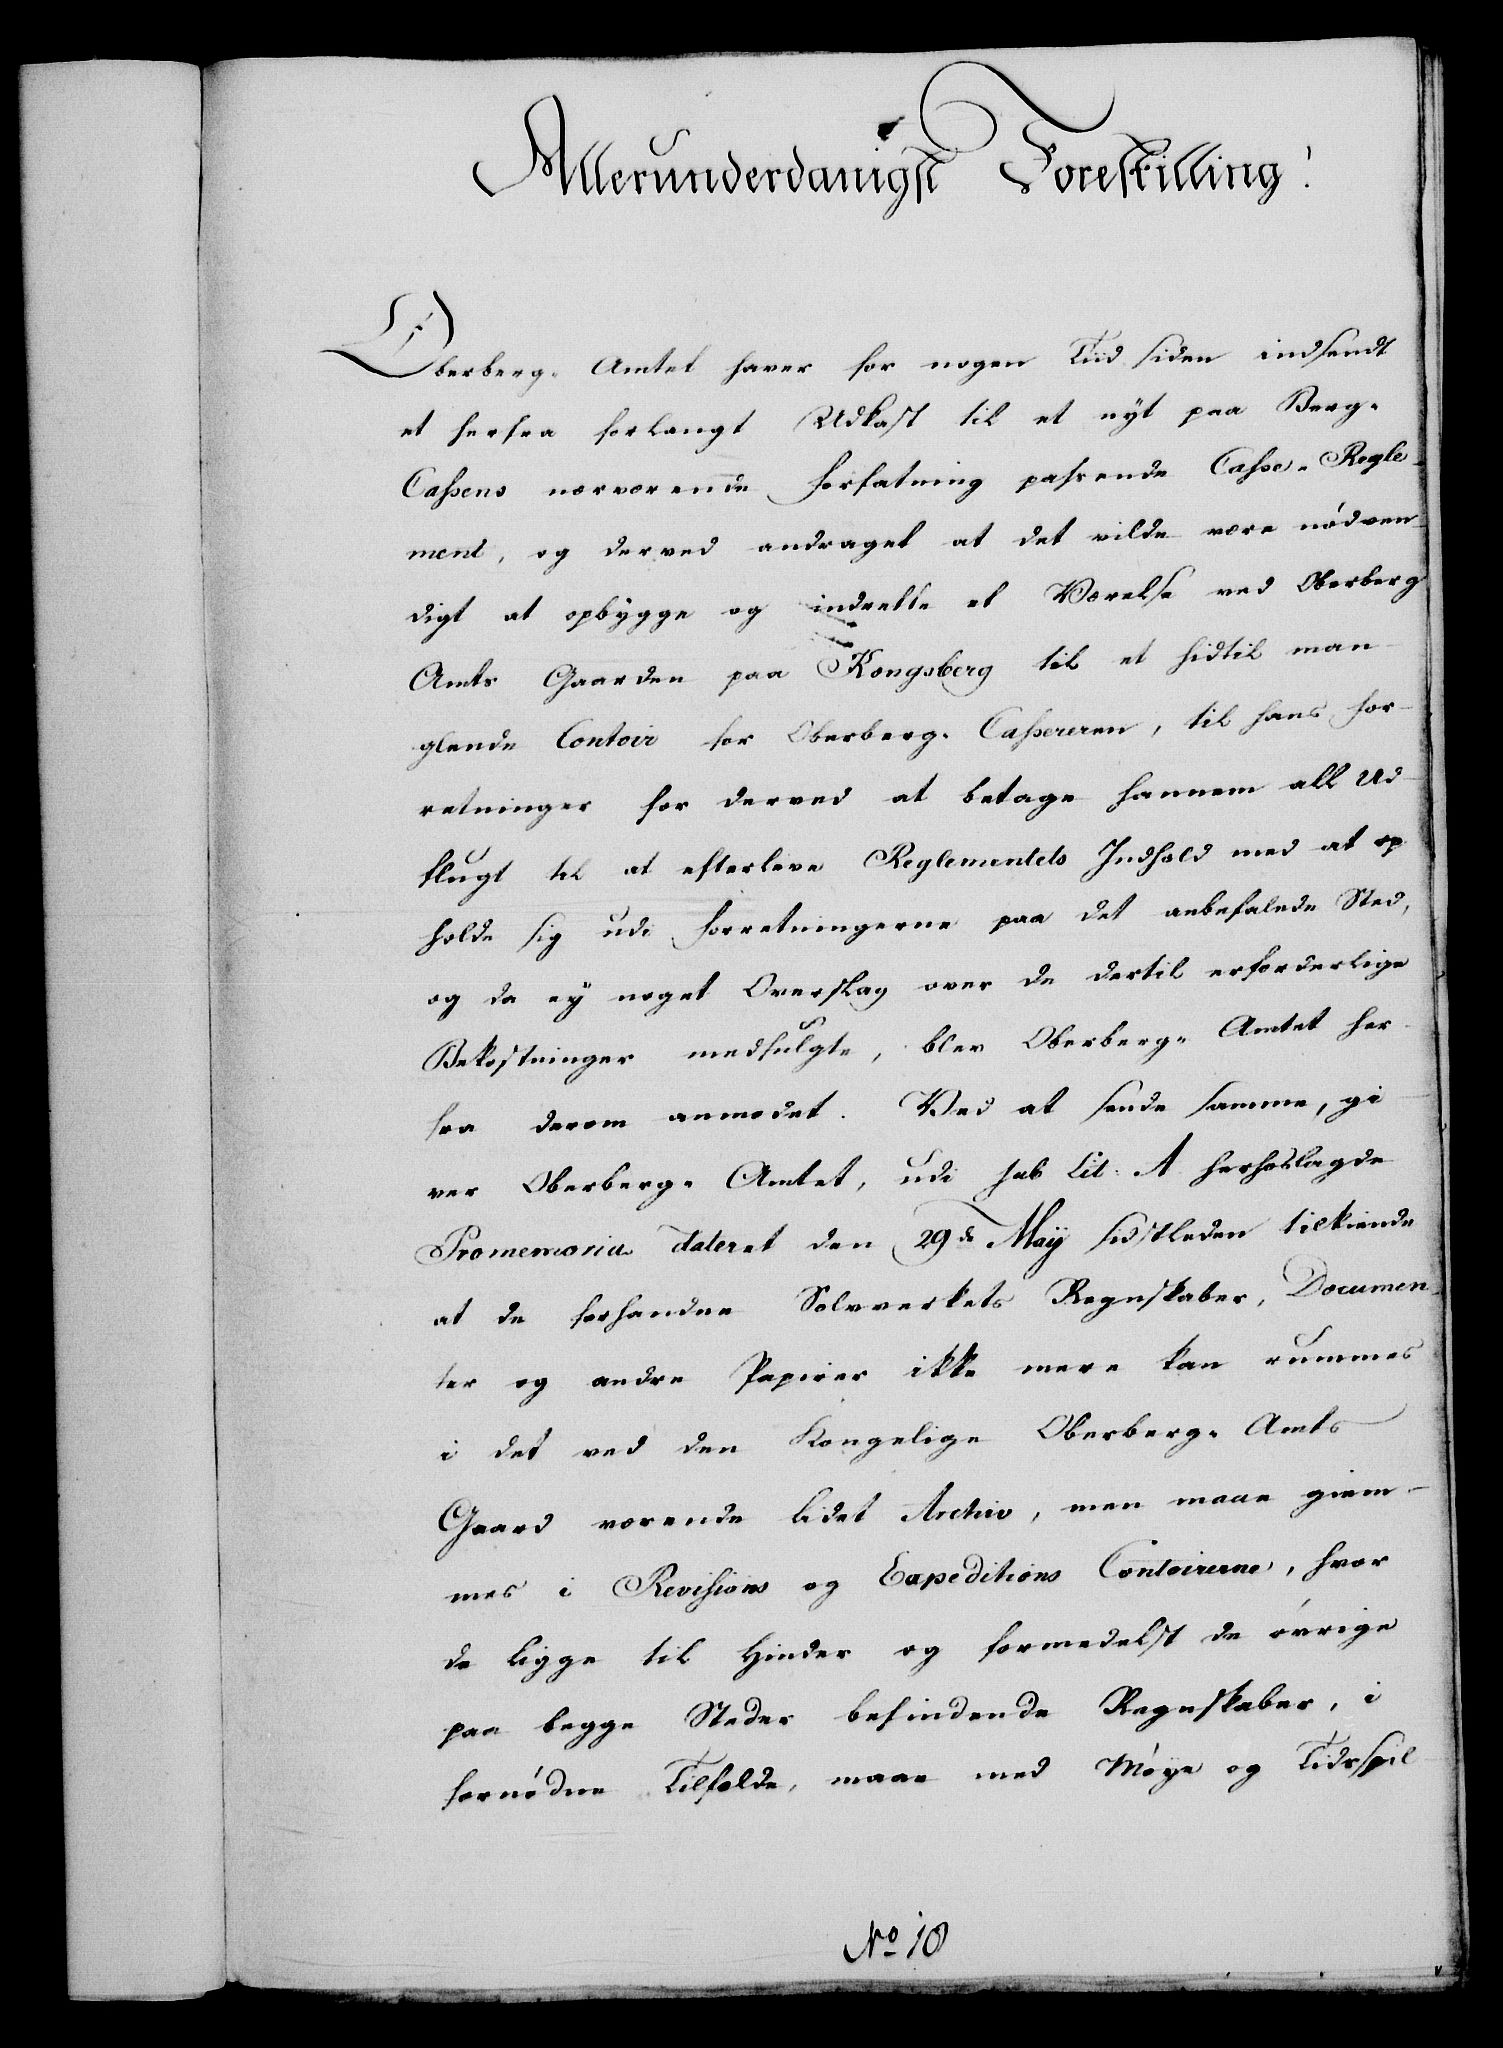 Allerunderdanigst Forestilling!
Oberberg-Amtet haver for nogen Tiid siden indsendt
et herfra forlangt Udkast til et nyt paa Berg-
Cassens nærværende Forfatning passende Casse-Regle-
ment, og derved andraget at det vilde være nødven-
digt at opbygge og indrette et Værelse ved Oberberg
Amts Gaarden paa Kongsberg til et hidtil man-
glende Contoir for Oberberg-Cassereren, til hans For-
retninger for derved at betage hannem all Ud-
flugt til at efterleve Reglementets Indhold med at op
holde sig udi Forretningerne paa det anbefalede Sted,
og da ey noget Overslag over de dertil erforderlige
Bekostninger medfulgte, blev Oberberg-Amtet her-
fra derom anmodet. Ved at sende samme, gi-
ver Oberberg-Amtet, udi sub Lit: A herhoslagde
Promemoria dateret den 29de Maÿ sidstleden tilkiende
at de forhandne Sølvverkets Regnskaber, Documen-
ter og andre Papirer ikke mere kan rummes
i det ved den Kongelige Oberberg-Amts
Gaard værende lidet Archiv, men maae giem-
mes i Revisions og Expeditions Contoirerne, hvor
de ligge til Hinder og formedelst de øvrige
paa begge Steder befindende Regnskaber, i
fornødne Tilfælde, maae med Møye og Tidsspil-
No 18